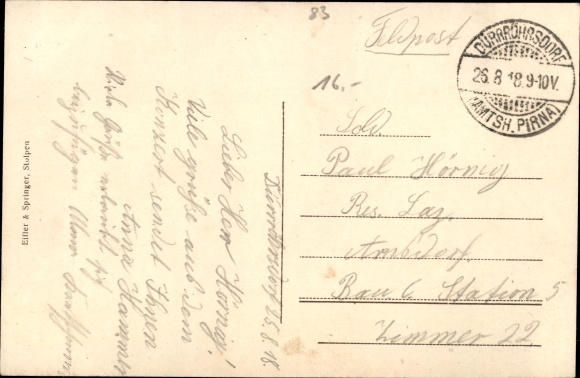 83
Feldpost
DÜRRRÖHRSDORF
26.8.18.9-10V.
(AMTSH. PIRNA)
16.-
Sold.
Paul Hörnig
Res. Laz.
Arnsdorf.
Bau 6 Station 5
Zimmer 22
Dürrröhrsdorf 25.8.18.
Lieber Herr Hörnig!
Viele grüße aus dem
Konzert sendet Ihnen
Anna Hammer
Viele Grüße
Eiller & Springer, Stolpen